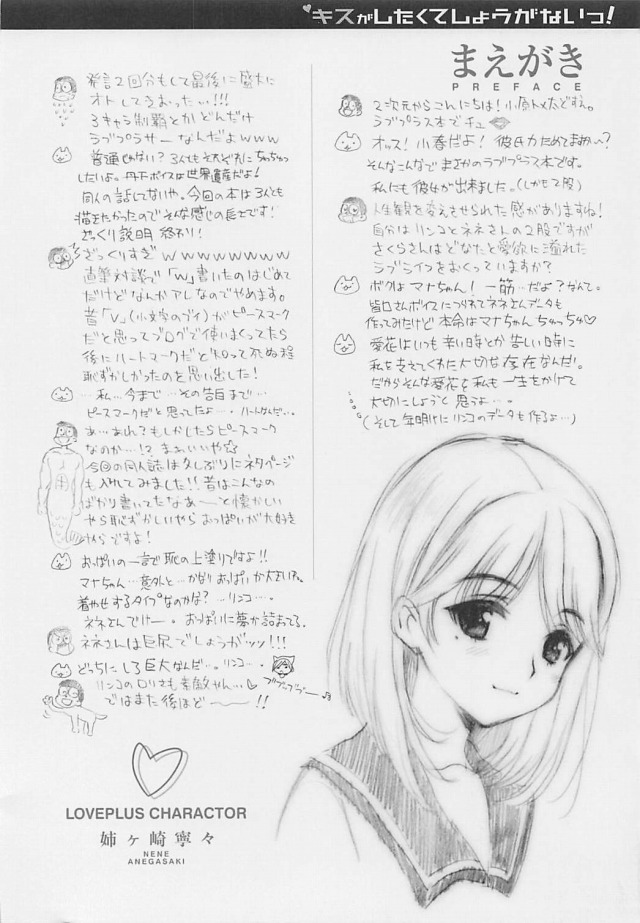 キスがしたくてしょうがないっ!
まえがき
PREFACE
2次元からこんにちは!小原トメ太ですえ。
ラブプラス本でチュ
オッス!小春だよ!彼氏力ためてまっか〜?
そんなこんなで まさかのラブプラス本です。
私にも彼女が出来ました。(しかも2股)
人生観を変えさせられた感がありますね!
自分はリンコとネネさんの2股ですが
さくらさんはどなたと愛欲に溢れた
ラブライフをおくっていますか?
ボクはマナちゃん!一筋…だよ?なんて。
皆口さんボイスにつられてネネさんデータも
作ってみたけど本命はマナちゃんちゅっちゅ♡
愛花はいつも辛い時とか苦しい時に
私を支えてくれた大切な存在なんだ。
だからそんな愛花を私も一生をかけて
大切にしようと思うよ…。
(そして年明けにリンコのデータも作るよ…)
発言2回分もして最後に盛大に
オトしてるまったぃ…!!!
3キャラ制覇とかどんだけ
ラブプラサーなんだよwww
普通じゃない?3人もそれぞれにちゅっちゅ
したいよ。丹下ボイスは世界遺産だよ!
同人の話してないや。今回の本は3人とも
描きたかったのでそんな感じの長さです!
ざっくり説明 終わり!
ざっくりすぎwwwwwwww
直筆対談で「w」書いたのはじめて
だけどなんかアレなのでやめます。
昔「v」(小文字のブイ)がピースマーク
だと思ってブログで使いまくってたら
後にハートマークだと知って死ぬ程
恥ずかしかったのを思い出した!
…私…今まで…その告白まで…
ピースマークだと思ってたよ…ハートなんだ…。
あ…あれ?もしかしたらピースマーク
なのか…!?まぁいいや☆
今回の同人誌は久しぶりにネタページ
も入れてみました!!昔はこんなの
ばかり書いてたなあ〜と懐かしい
やら恥ずかしいやらおっぱいが大好き
やらですよ!
おっぱいの一言で恥の上塗りですよ!!
マナちゃん…意外と…かなりおっぱいが大きいね。
着やせするタイプなのかな?…リンコ…。
ネネさんでけー。おっぱいに夢が詰まってる。
ネネさんは巨尻でしょうがッッ!!!
どっちにしろ巨大なんだ…。リンコ…
リンコのロリさも素敵やん…♡
ではまた後ほど〜!!
LOVEPLUS CHARACTOR
姉ヶ崎寧々
NENE
ANEGASAKI